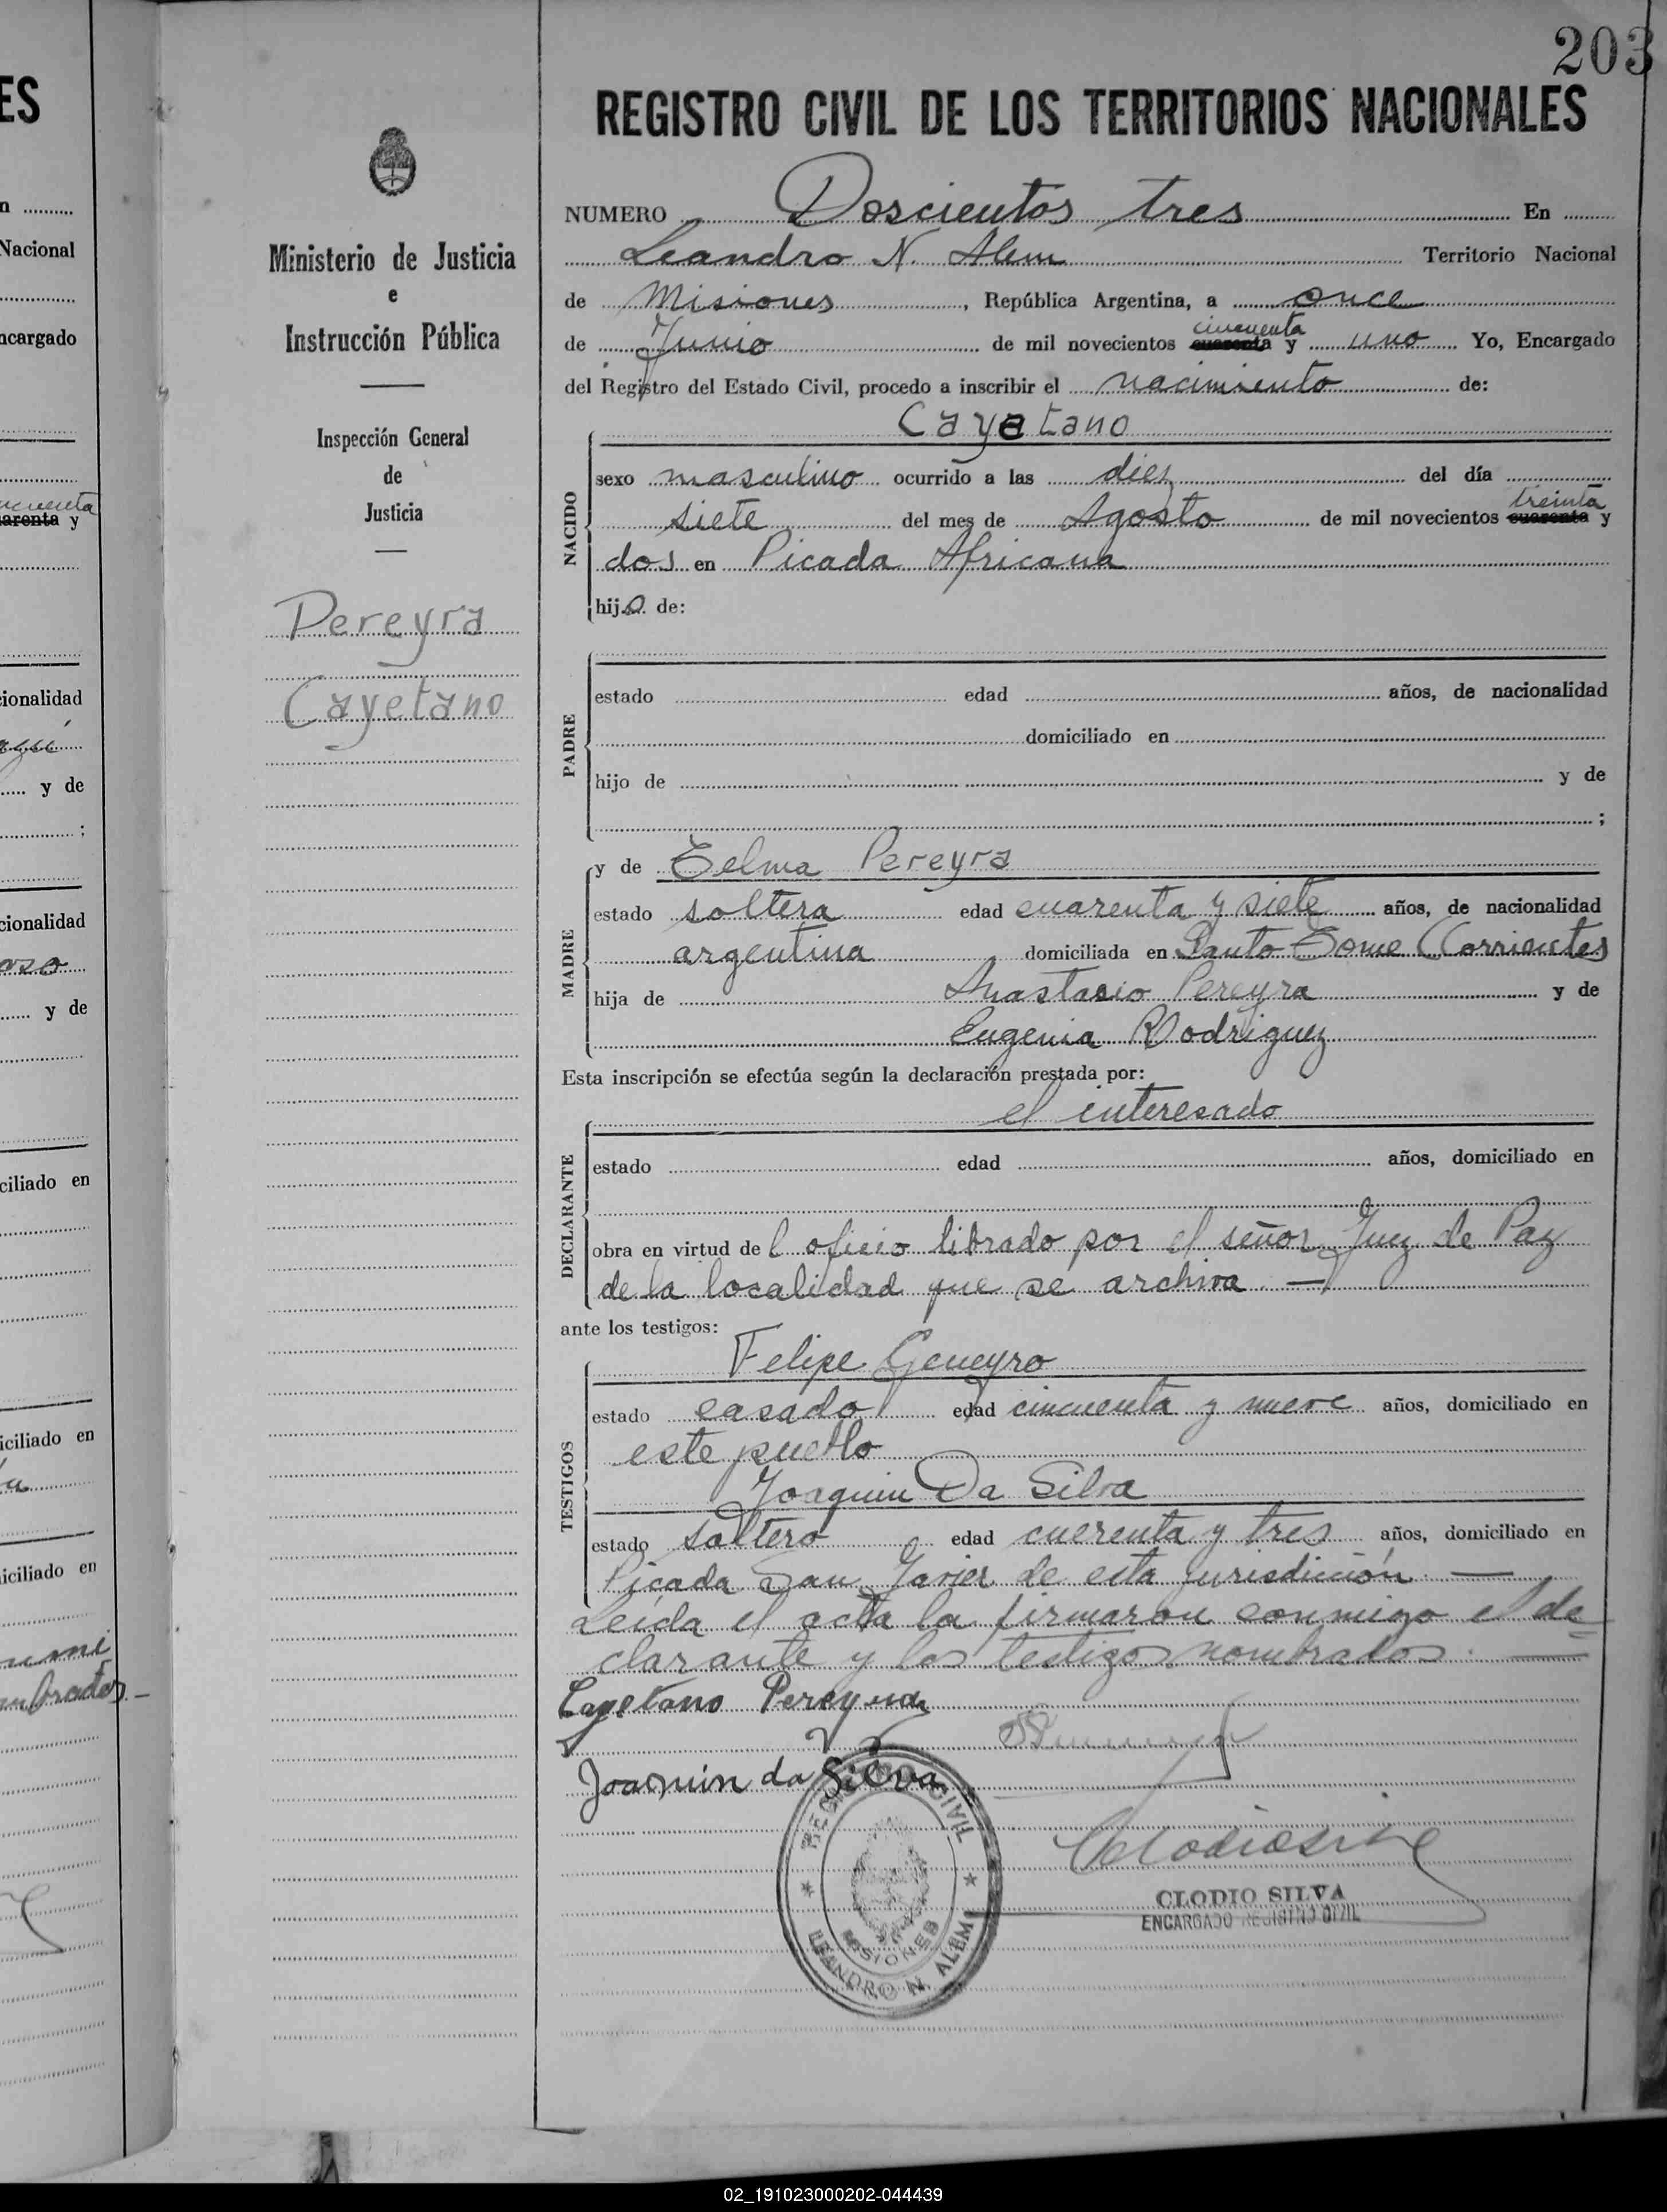 203
REGISTRO CIVIL DE LOS TERRITORIOS NACIONALES
NUMERO Doscientos tres En
Leandro N. Alem Territorio Nacional
de Misiones, República Argentina, a once
de Junio de mil novecientos cincuenta cuarenta y uno Yo, Encargado
del Registro del Estado Civil, procedo a inscribir el nacimiento de:
Cayetano
NACIDO
sexo masculino ocurrido a las diez del día
siete del mes de Agosto de mil novecientos treinta cuarenta y
dos en Picada Africana
hijo de:
PADRE
estado edad años, de nacionalidad
domiciliado en
hijo de y de
;
MADRE
y de Telma Pereyra
estado soltera edad cuarenta y siete años, de nacionalidad
argentina domiciliada en Santo Tome (Corrientes
hija de Anastacio Pereyra y de
Eugenia Rodriguez
Esta inscripción se efectúa según la declaración prestada por:
el interesado
DECLARANTE
estado edad años, domiciliado en
obra en virtud del oficio librado por el señor Juez de Paz
de la localidad que se archiva —
ante los testigos:
TESTIGOS
Felipe Geneyro
estado casado edad cincuenta y nueve años, domiciliado en
este pueblo
Joaquin Da Silva
estado soltero edad cuerenta y tres años, domiciliado en
Picada San Javier de esta jurisdicción. —
Leída el acta la firmaron conmigo el de=
clarante y los testigos nombrados. —
Cayetano Pereyra
Joaquin da Silva
REGISTRO CIVIL
MISIONES
LEANDRO N. ALEM
Clodio Silva
CLODIO SILVA
ENCARGADO REGISTRO CIVIL
Ministerio de Justicia
e
Instrucción Pública
Inspección General
de
Justicia
Pereyra
Cayetano
ES
Nacional
ncargado
cincuenta
arenta y
cionalidad
y de
;
cionalidad
y de
ciliado en
iciliado en
iciliado en
02_191023000202-044439